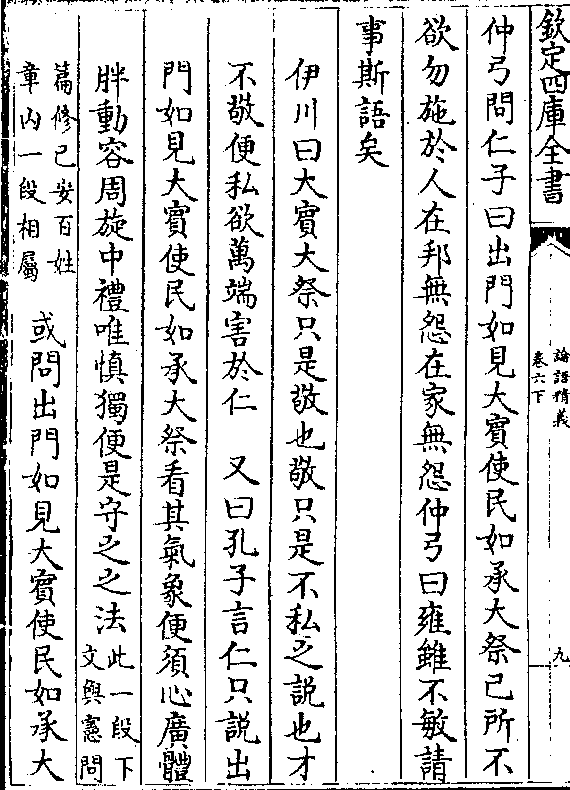 欽定四庫全書
論語精義
卷六下
九
仲弓問仁子曰出門如見大賓使民如承大祭己所不
欲勿施於人在邦無怨在家無怨仲弓曰雍雖不敏請
事斯語矣
伊川曰大賓大祭只是敬也敬只是不私之説也才
不敬便私欲萬端害於仁　又曰孔子言仁只説出
門如見大賓使民如承大祭看其氣象便須心廣體
胖動容周旋中禮唯慎獨便是守之之法此一段下
文與憲問
篇修己安百姓
章内一段相屬
或問出門如見大賓使民如承大